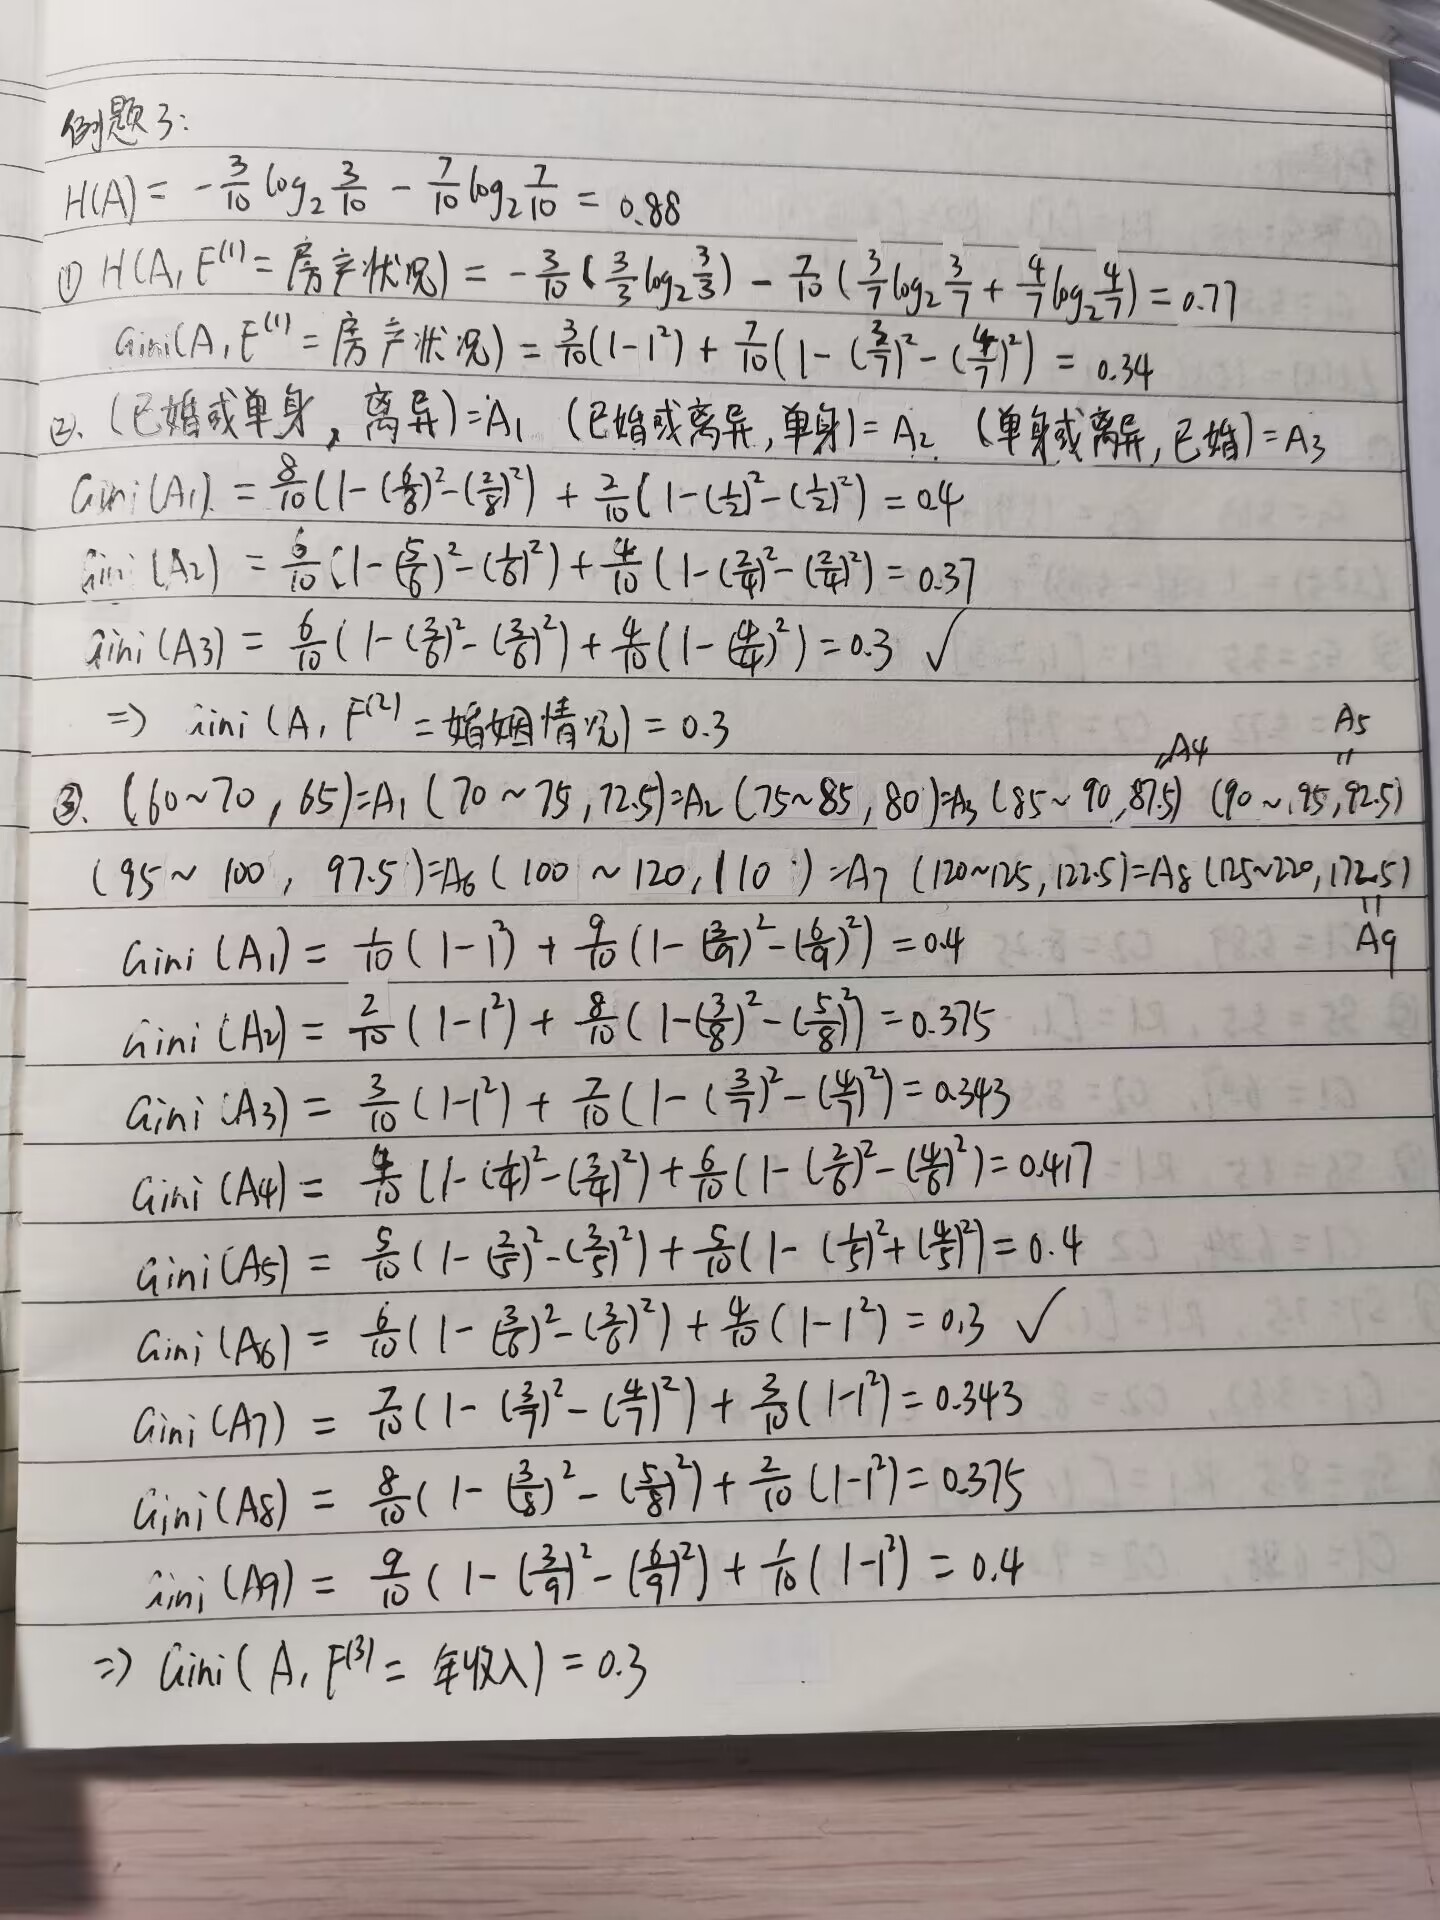 例题3:
H(A) = -3/10 log₂ 3/10 - 7/10 log₂ 7/10 = 0.88
① H(A, F⁽¹⁾ = 房产状况) = -3/10 (3/3 log₂ 3/3) - 7/10 (3/7 log₂ 3/7 + 4/7 log₂ 4/7) = 0.77
Gini(A, F⁽¹⁾ = 房产状况) = 3/10(1-1²) + 7/10(1 - (3/7)² - (4/7)²) = 0.34
②. (已婚或单身, 离异)=A₁ (已婚或离异, 单身)= A₂ (单身或离异, 已婚)=A₃
Gini(A₁) = 8/10(1-(6/8)²-(2/8)²) + 2/10(1-(1/2)²-(1/2)²) = 0.4
Gini(A₂) = 6/10(1-(5/6)²-(1/6)²) + 4/10(1-(2/4)²-(2/4)²) = 0.37
Gini(A₃) = 6/10(1-(3/6)²-(3/6)²) + 4/10(1-(4/4)²) = 0.3 ✓
=> Gini(A, F⁽²⁾ = 婚姻情况) = 0.3
③. (60~70, 65)=A₁ (70~75, 72.5)=A₂ (75~85, 80)=A₃ (85~90, 87.5)=A₄ (90~95, 92.5)=A₅
(95~100, 97.5)=A₆ (100~120, 110)=A₇ (120~125, 122.5)=A₈ (125~220, 172.5)=A₉
Gini(A₁) = 1/10(1-1²) + 9/10(1-(3/9)²-(6/9)²) = 0.4
Gini(A₂) = 2/10(1-1²) + 8/10(1-(3/8)²-(5/8)²) = 0.375
Gini(A₃) = 3/10(1-1²) + 7/10(1-(3/7)²-(4/7)²) = 0.343
Gini(A₄) = 4/10(1-(1/4)²-(3/4)²) + 6/10(1-(2/6)²-(4/6)²) = 0.417
Gini(A₅) = 5/10(1-(2/5)²-(3/5)²) + 5/10(1-(1/5)²+(4/5)²) = 0.4
Gini(A₆) = 6/10(1-(3/6)²-(3/6)²) + 4/10(1-1²) = 0.3 ✓
Gini(A₇) = 7/10(1-(3/7)²-(4/7)²) + 3/10(1-1²) = 0.343
Gini(A₈) = 8/10(1-(3/8)²-(5/8)²) + 2/10(1-1²) = 0.375
Gini(A₉) = 9/10(1-(3/9)²-(6/9)²) + 1/10(1-1²) = 0.4
=> Gini(A, F⁽³⁾ = 年收入) = 0.3